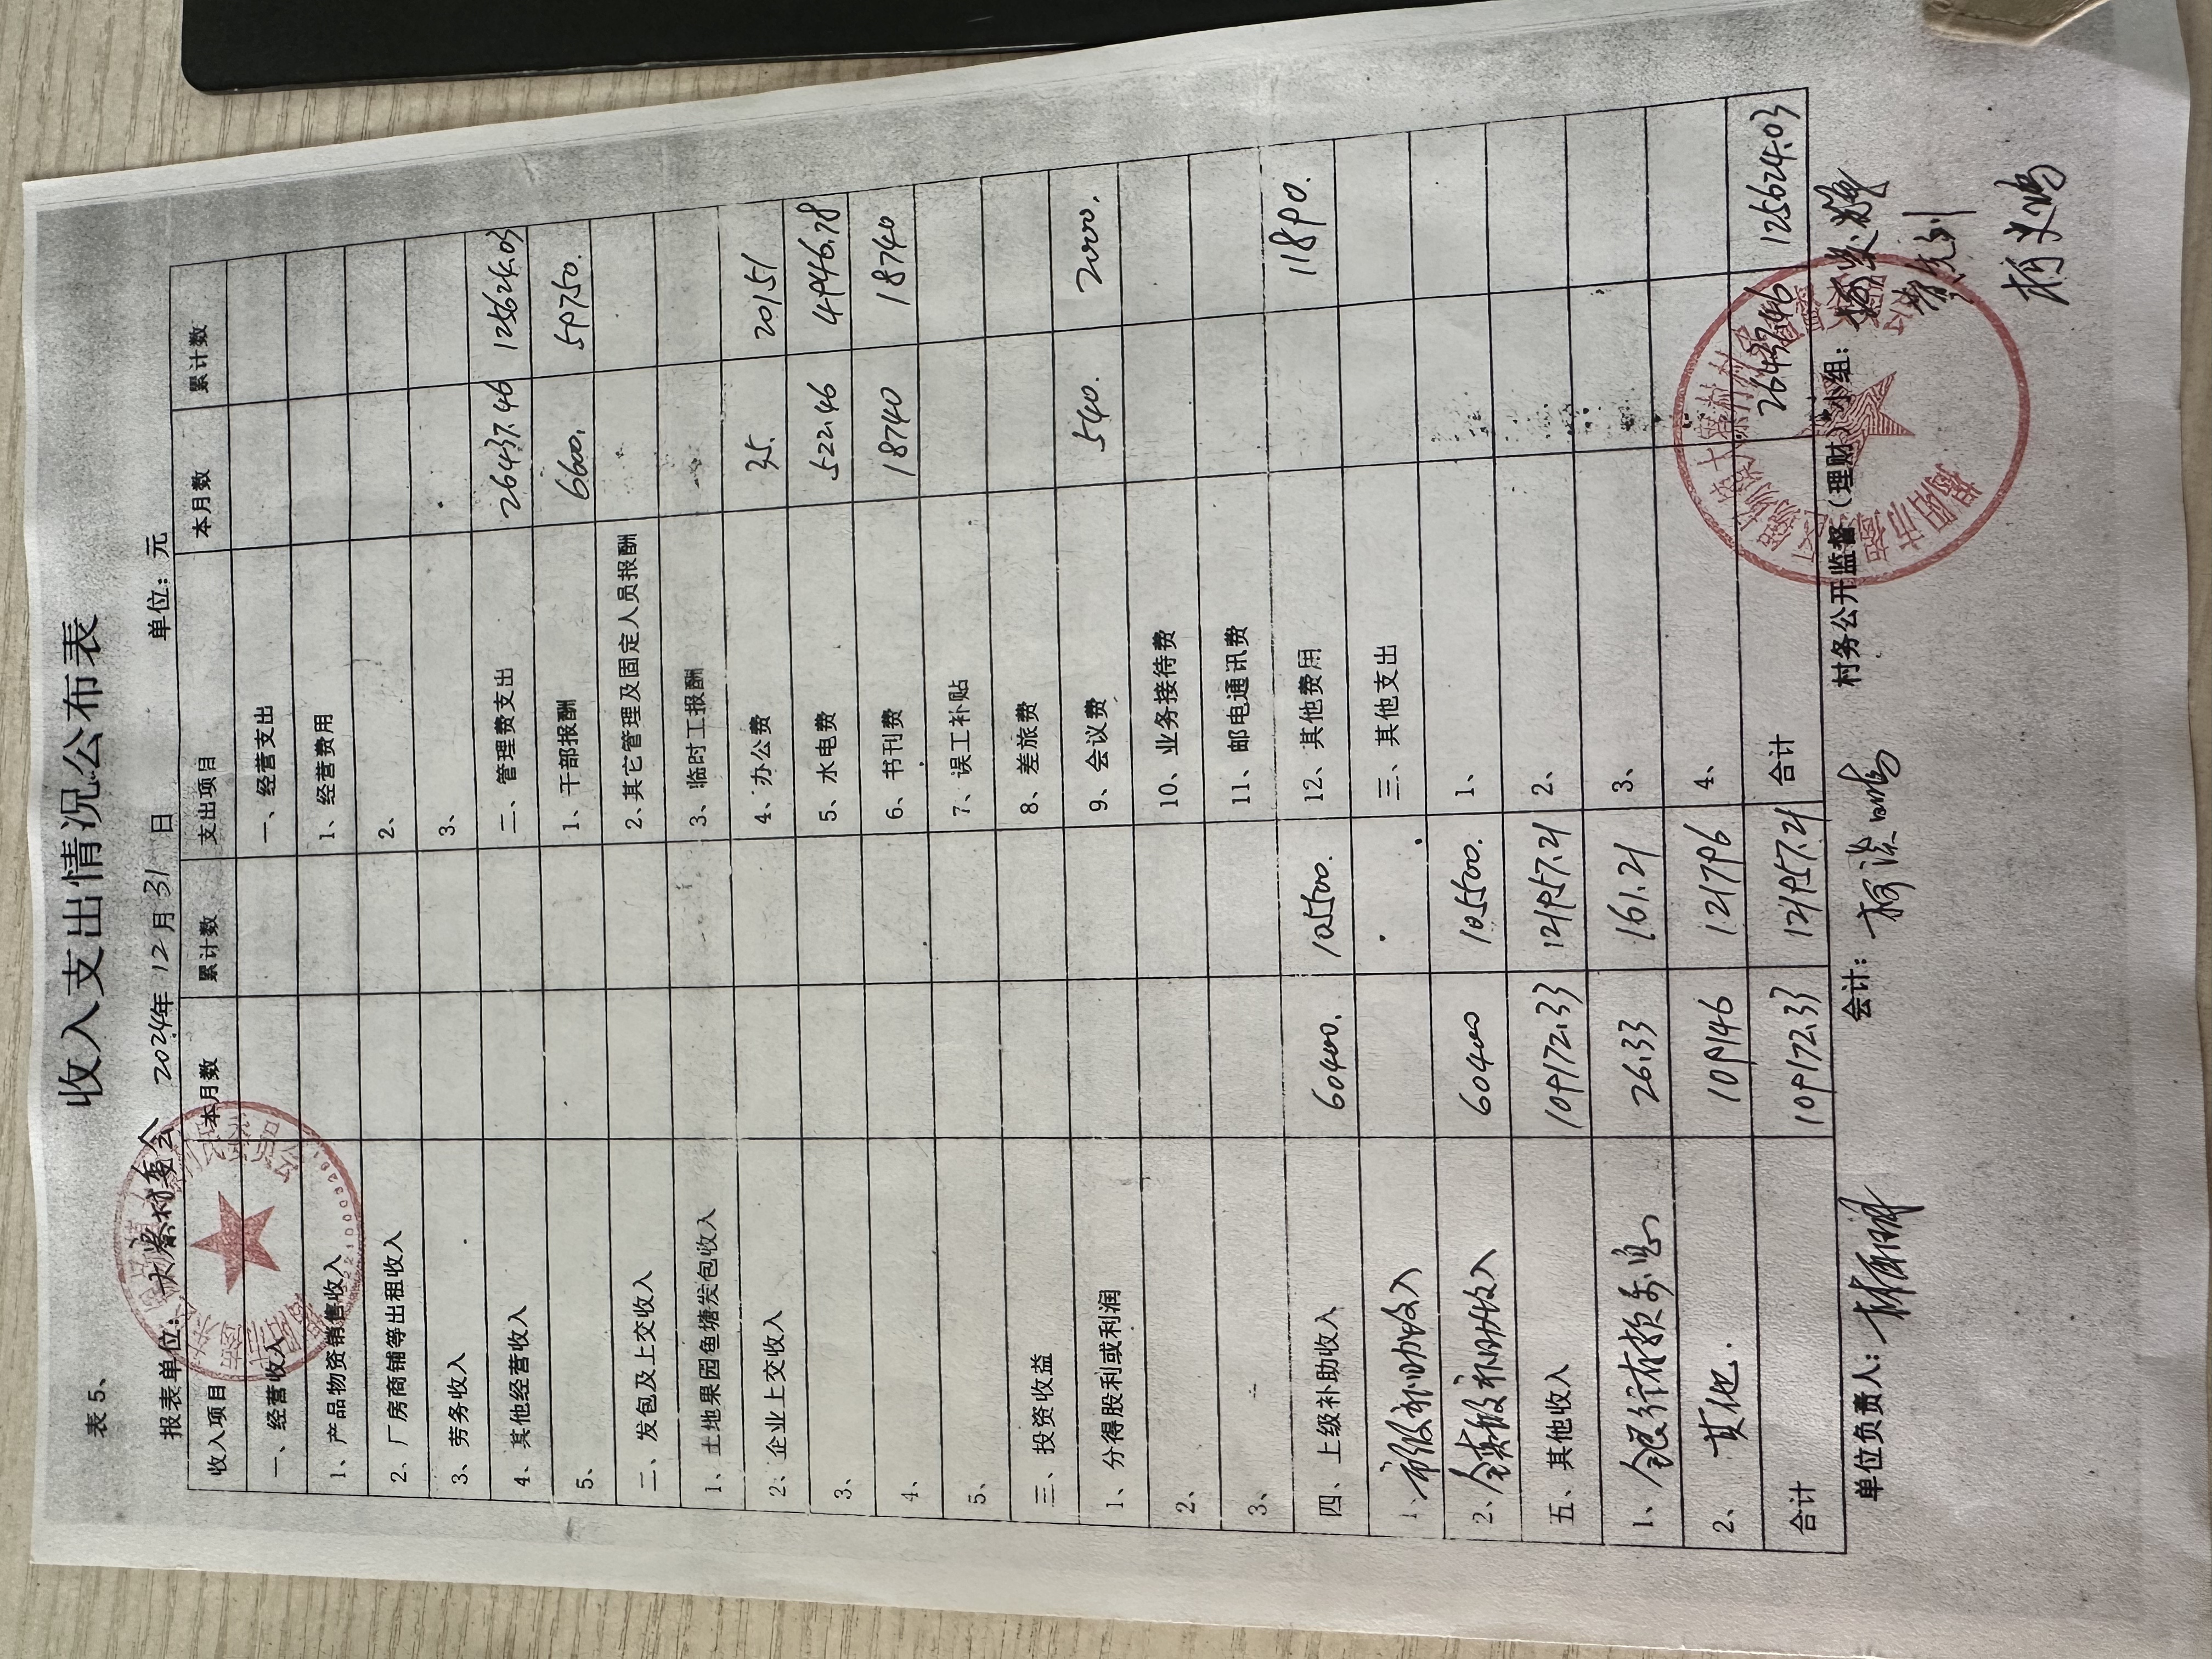 表5、
收入支出情况公布表
报表单位: 大寮村委会 2024年12月31日 单位: 元
收入项目 本月数 累计数 支出项目 本月数 累计数
一、经营收入 一、经营支出
1、产品物资销售收入 1、经营费用
2、厂房商铺等出租收入 2、
3、劳务收入 3、
4、其他经营收入 二、管理费支出 26437.46 125624.03
5、 1、干部报酬 6600. 59750.
二、发包及上交收入 2、其它管理及固定人员报酬
1、土地果园鱼塘发包收入 3、临时工报酬
2、企业上交收入 4、办公费 35. 20151
3、 5、水电费 522.46 4946.78
4、 6、书刊费 18740 18740
5、 7、误工补贴
三、投资收益 8、差旅费
1、分得股利或利润 9、会议费 540. 2000.
2、 10、业务接待费
3、 11、邮电通讯费
四、上级补助收入 60400. 105500. 12、其他费用 11890.
1、市级补助收入 三、其他支出
2、镇级补助收入 60400 105500. 1、
五、其他收入 109172.33 121957.21 2、
1、银行存款利息 26.33 161.21 3、
2、其他. 109146 121796 4、
合计 109172.33 121957.21 合计 26437.46 125624.03
单位负责人: 会计: 村务公开监督(理财)小组: